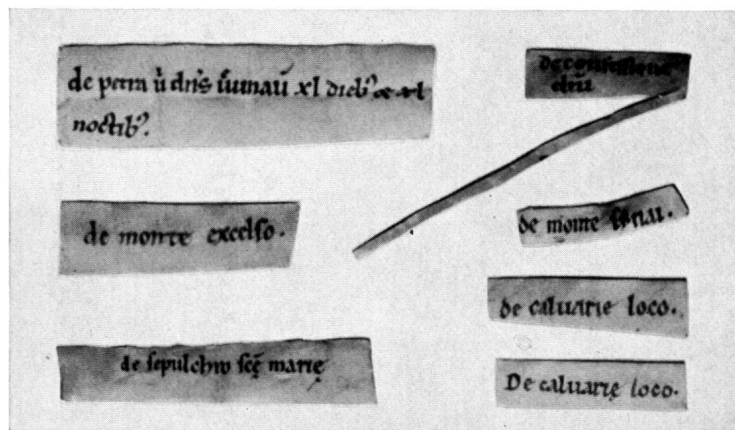 de petra ū dn̄s ieiunaū xl dieb᷒ ⁊ xl
noctib᷒.
de monte excelso.
de sepulchro sc̄ę marię
de confessione
de monte sinai.
de caluarie loco.
De caluarię loco.